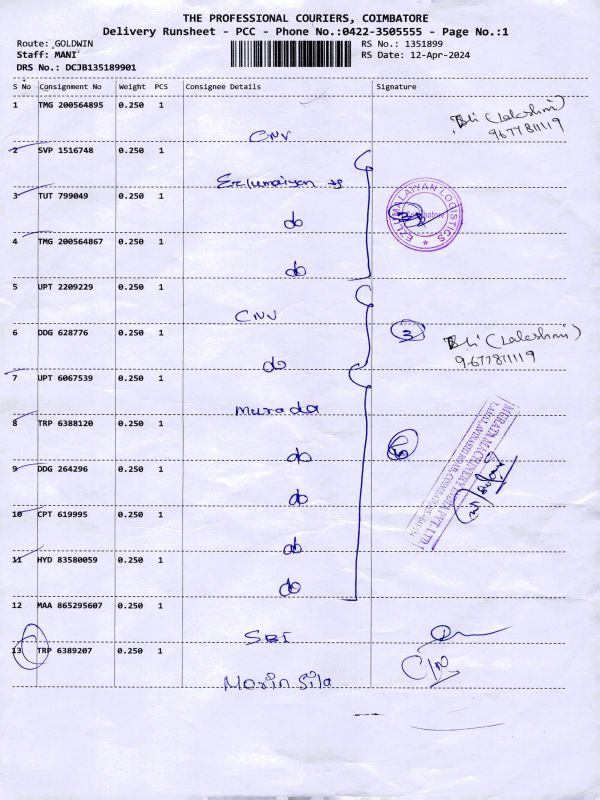 THE PROFESSIONAL COURIERS, COIMBATORE
Delivery Runsheet - PCC - Phone No.:0422-3505555 - Page No.:1
Route: GOLDWIN RS No.: 1351899
Staff: MANI RS Date: 12-Apr-2024
DRS No.: DCJB135189901
S No Consignment No Weight PCS Consignee Details Signature
1 TMG 200564895 0.250 1
(Lakshmi)
9677811119
CNV
2 SVP 1516748 0.250 1
Ezlumaiyan
3 TUT 799049 0.250 1
do
EZLUMALAIYAN LOGISTICS
Coimbatore
4 TMG 200564867 0.250 1
do
5 UPT 2209229 0.250 1
CNV
6 DDG 628776 0.250 1
2 (Lakshmi)
9677811119
do
7 UPT 6067539 0.250 1
Murada
8 TRP 6388120 0.250 1
do
MURATA MACHINERY INDIA PVT. LTD.
9 DDG 264296 0.250 1
do
10 CPT 619995 0.250 1
do
11 HYD 83580059 0.250 1
do
12 MAA 865295607 0.250 1
SBI
13 TRP 6389207 0.250 1
Morin Sila